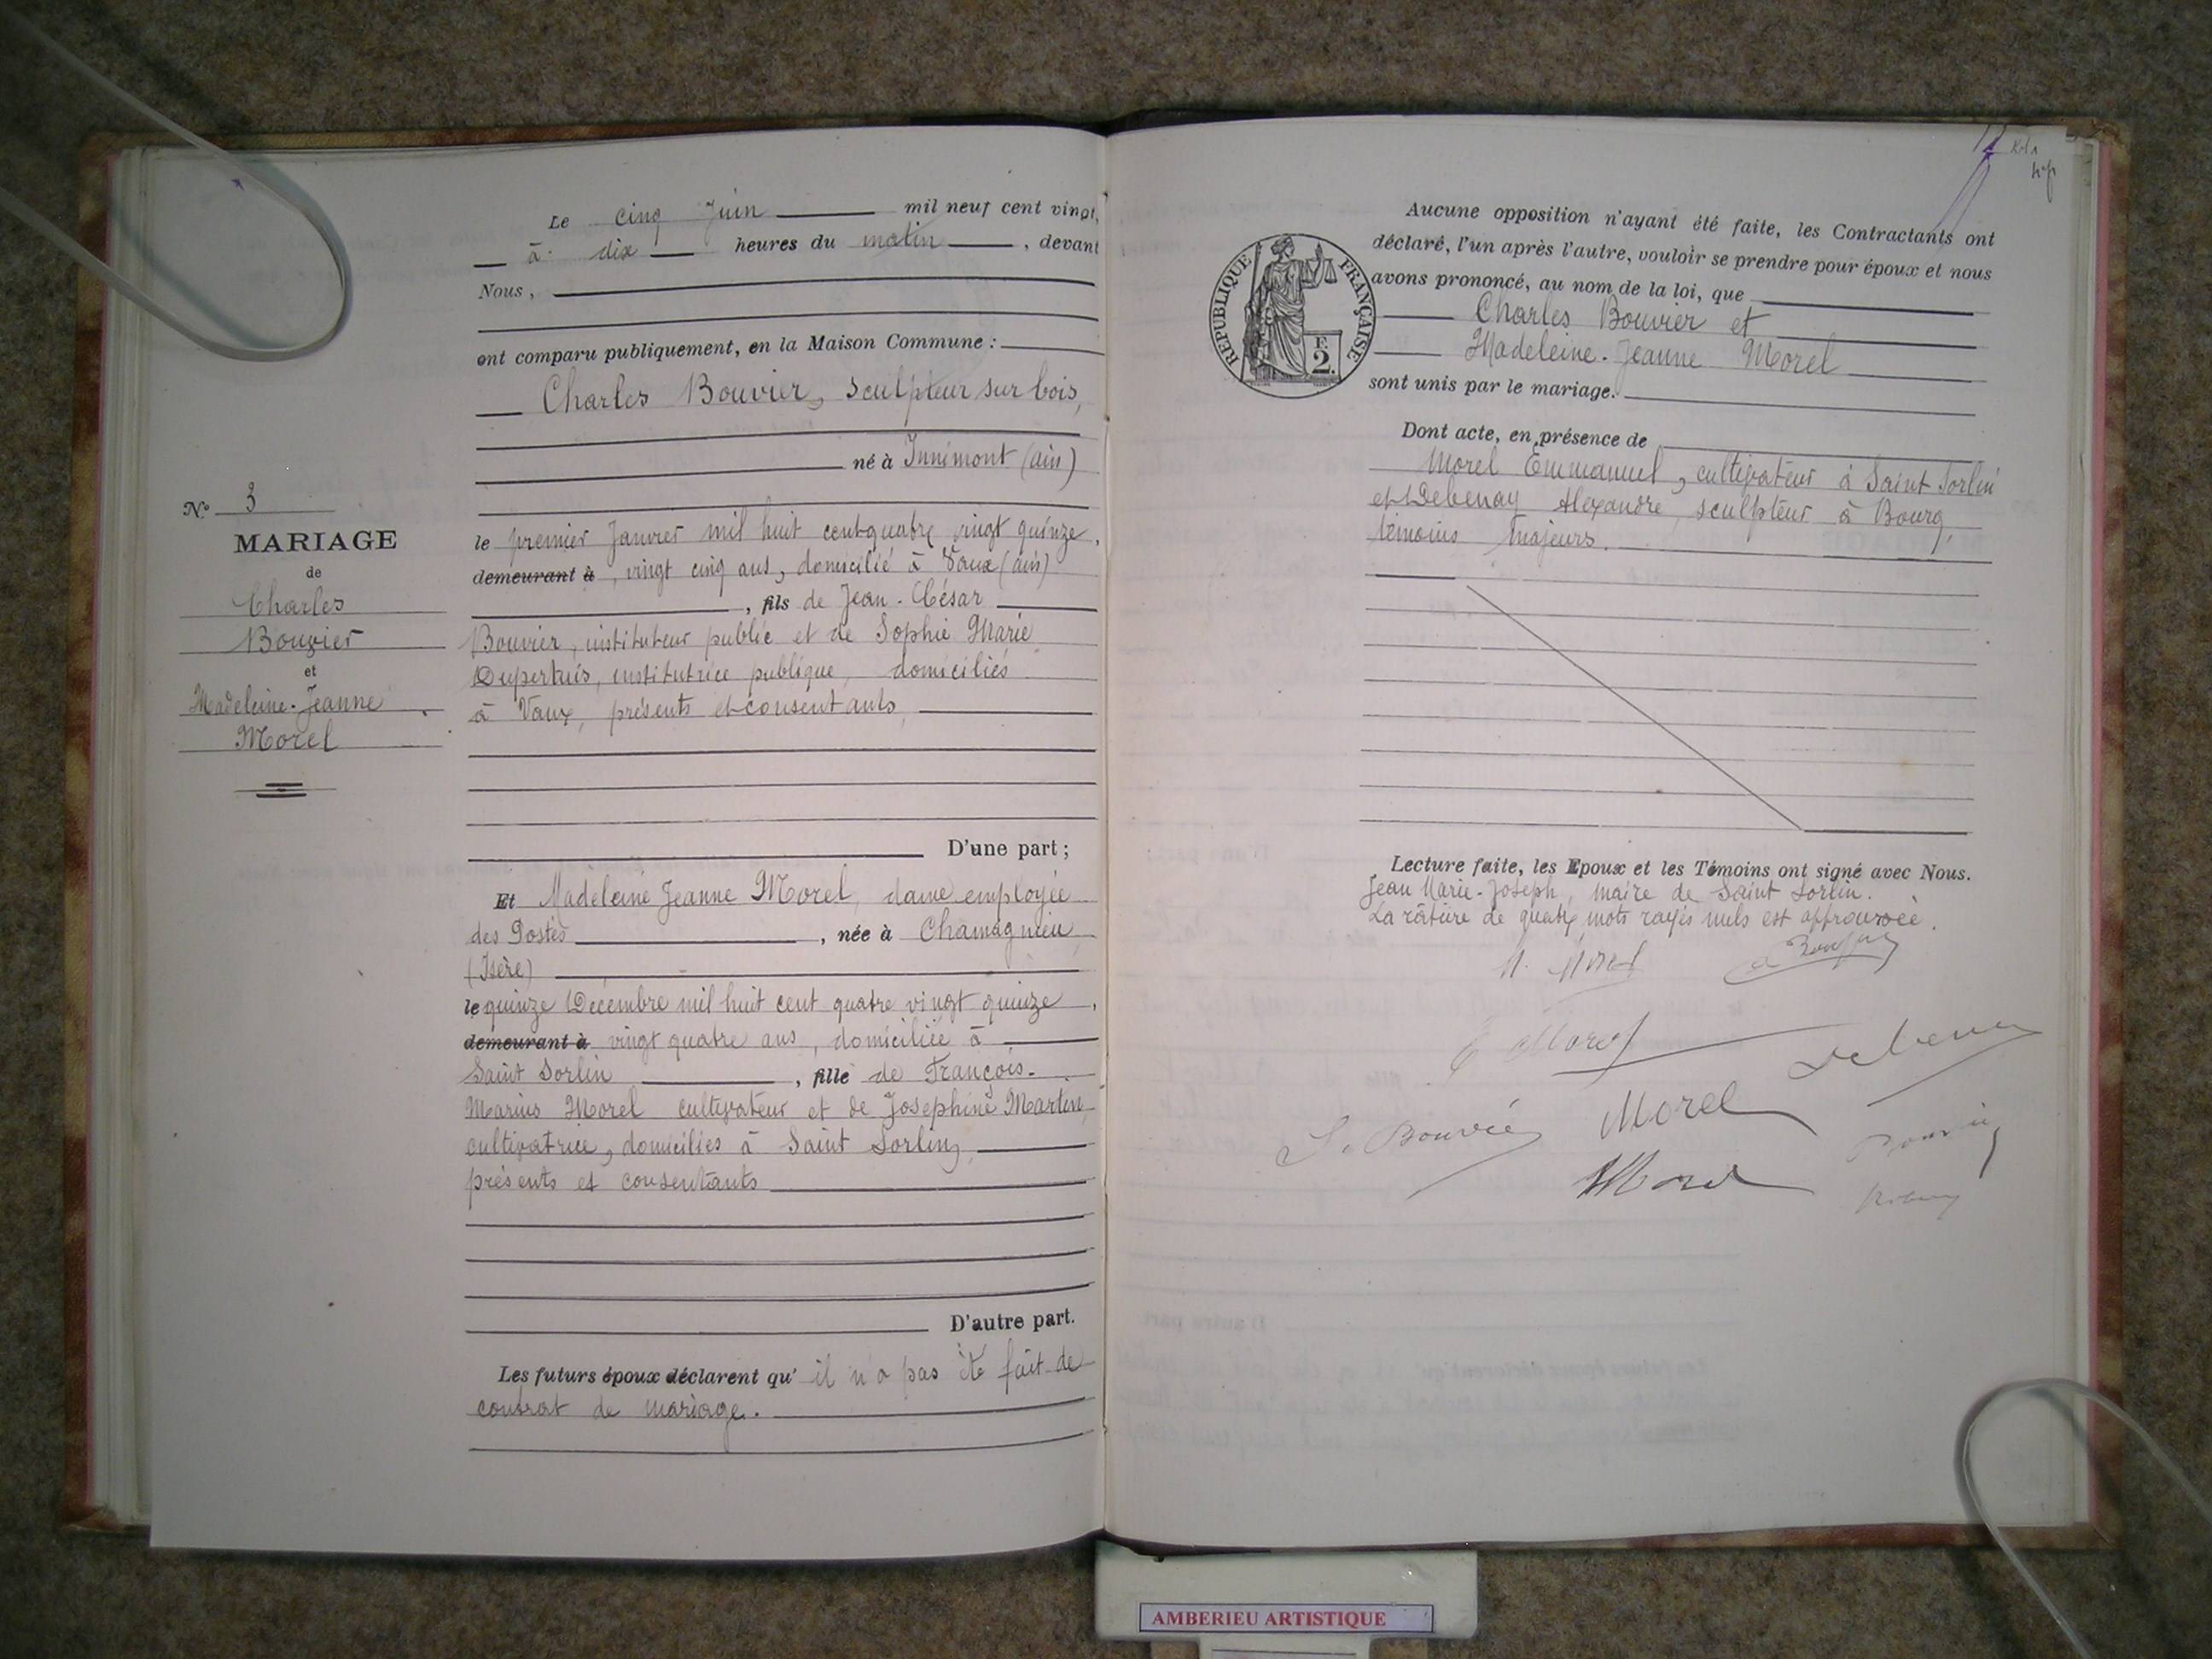 Le cinq Juin mil neuf cent vingt,
à dix heures du matin, devant
Nous,
ont comparu publiquement, en la Maison Commune :
Charles Bouvier, sculpteur sur bois,
né à Innimont (ain)
N.º 3
MARIAGE
de
Charles
Bouvier
et
Madeleine-Jeanne
Morel
le premier Janvier mil huit cent quatre vingt quinze,
demeurant à, vingt cinq ans, domicilié à Vaux (ain)
, fils de Jean-César
Bouvier, instituteur public et de Sophie Marie
Dupertuis, institutrice publique, domiciliés
à Vaux, présents et consentants,
D'une part ;
Et Madeleine Jeanne Morel, dame employée
des Postes, née à Chamagnieu
(Isère)
le quinze Décembre mil huit cent quatre vingt quinze,
demeurant à vingt quatre ans, domiciliée à
Saint Sorlin, fille de François-
Marius Morel cultivateur et de Joséphine Martin,
cultivatrice, domiciliés à Saint Sorlin,
présents et consentants
D'autre part.
Les futurs époux déclarent qu' il n'a pas été fait de
contrat de mariage.
Aucune opposition n'ayant été faite, les Contractants ont
déclaré, l'un après l'autre, vouloir se prendre pour époux et nous
avons prononcé, au nom de la loi, que
Charles Bouvier et
Madeleine-Jeanne Morel
sont unis par le mariage.
REPUBLIQUE FRANÇAISE
F. 2.
Dont acte, en présence de
Morel Emmanuel, cultivateur à Saint Sorlin
et Debenay Alexandre, sculpteur à Bourg,
témoins majeurs.
Lecture faite, les Epoux et les Témoins ont signé avec Nous.
Jean Marie-Joseph, maire de Saint Sorlin.
La râture de quatre mots rayés nuls est approuvée.
M. Morel
E Morel
Debenay
S. Bouvier Morel Bouvier
Morel
AMBERIEU ARTISTIQUE